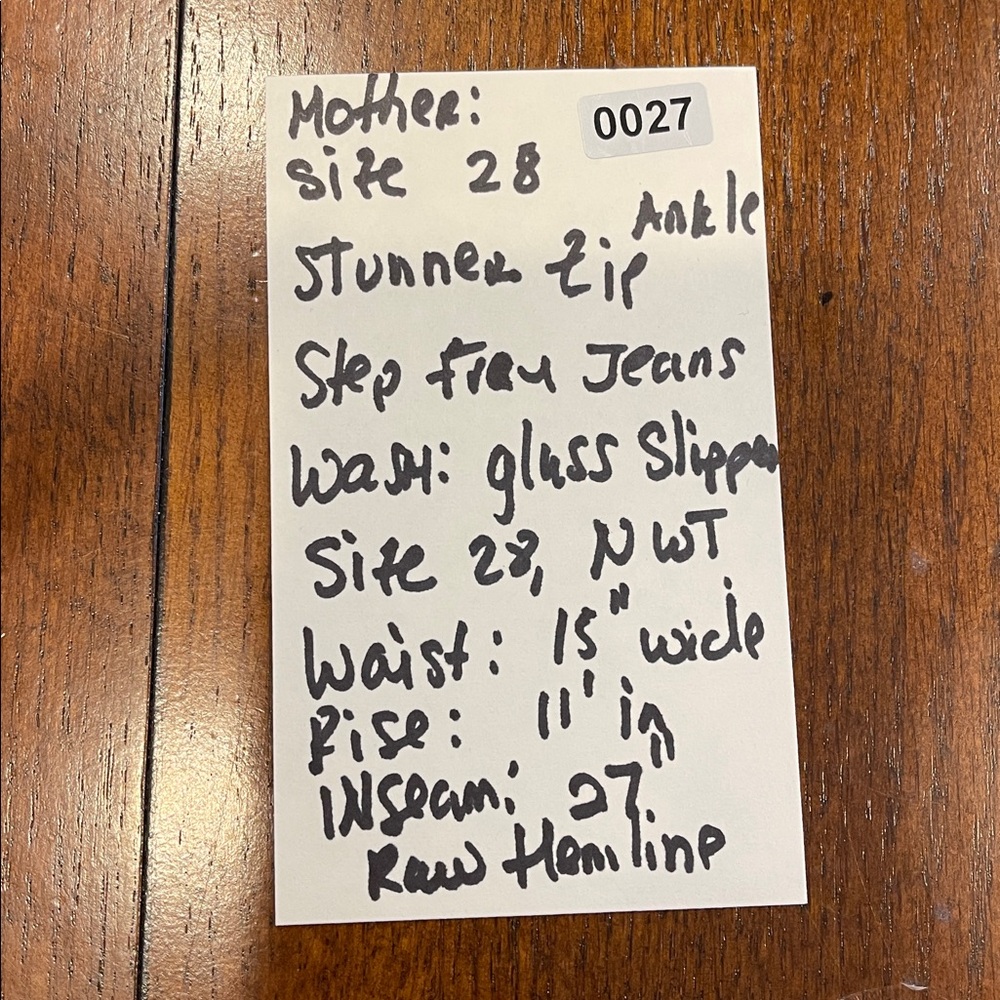 Mother:
0027
Size 28
Ankle
Stunner Zip
Step Fray Jeans
Wash: glass Slipper
Size 28, NWT
Waist: 15" wide
Rise: 11' in
INseam: 27"
Raw Hemline